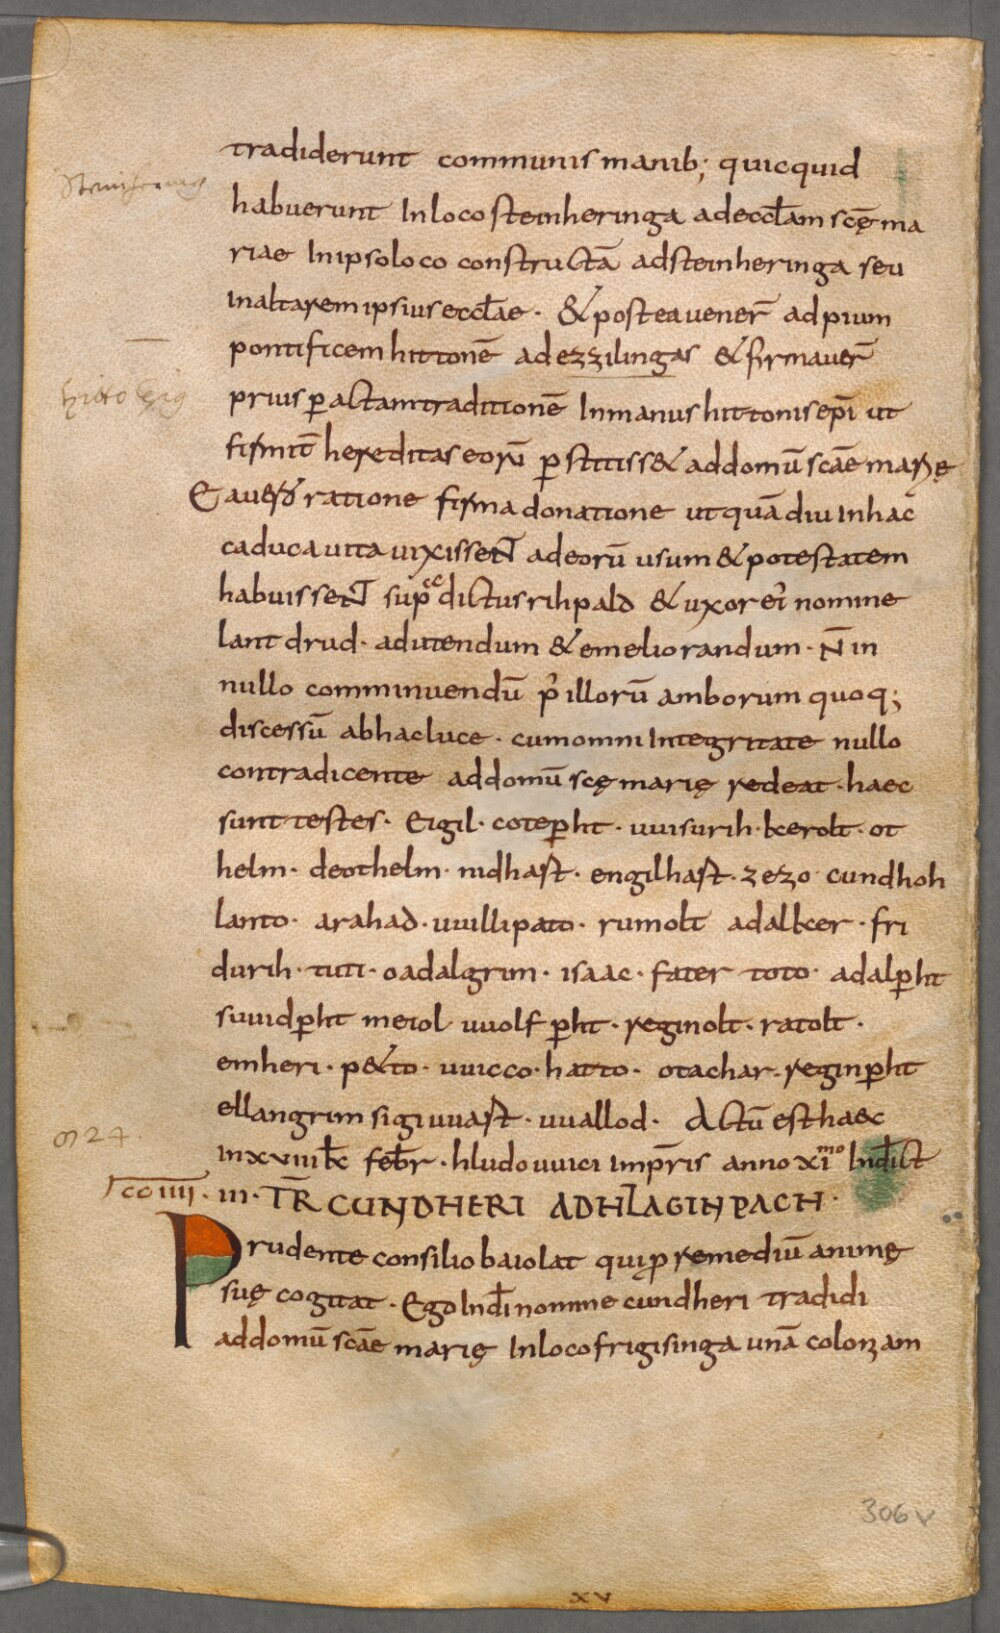 tradiderunt communis manib; quicquid
Steinhering
habuerunt In loco steinheringa ad eccłam scę ma
riae In ipso loco constructā ad steinheringa seu
in altarem ipsius eccłae · & postea uener̄ ad pium
pontificem hittonē ad ezzilingas & firmauer̄
hitto ep̄s
prius ꝑactam traditionē In manus hittonis epī ut
firmit̄ hereditas eorū ꝑstitiss& ad domū scāe marię
Ea uero ratione firma donatione ut quādiu in hac
caduca uita uixissent ad eorū usum & potestatem
habuissent sup̄dictus rihpald & uxor ei nomine
lantdrud · ad utendum & emeliorandum · N̄ in
nullo comminuendū p̄ illorū amborum quoq;
discessū ab hac luce · cum omni Integritate nullo
contradicente ad domū scę marię redeat · haec
sunt testes · Eigil · coteꝑht · uuisurih · kerolt · ot
helm · deothelm · nidhast · engilhast · zezo cundhoh
lanto · arahad · uuillipato · rumolt adalker · fri
durih · tuti · oadalgrim · isaac · fater toto · adalꝑht
suuidꝑht meiol uuolfꝑht · reginolt · ratolt ·
emheri · p&to · uuicco · hatto · otachar · reginꝑht
ellangrim sigiuuast · uuallod · Actū est haec
824
in xviiii kł febr̄ · hludouuici imp̄ris anno xi mo Indict
cō iiii · iii · TR̄ CUNDHERI AD HLAGINPACH ·
Prudente consilio baiolat qui ꝓ remediū animę
suę cogitat · Ego In dī nomine cundheri tradidi
ad domū scāe marię In loco frigisinga unā coloniam
306v
xv